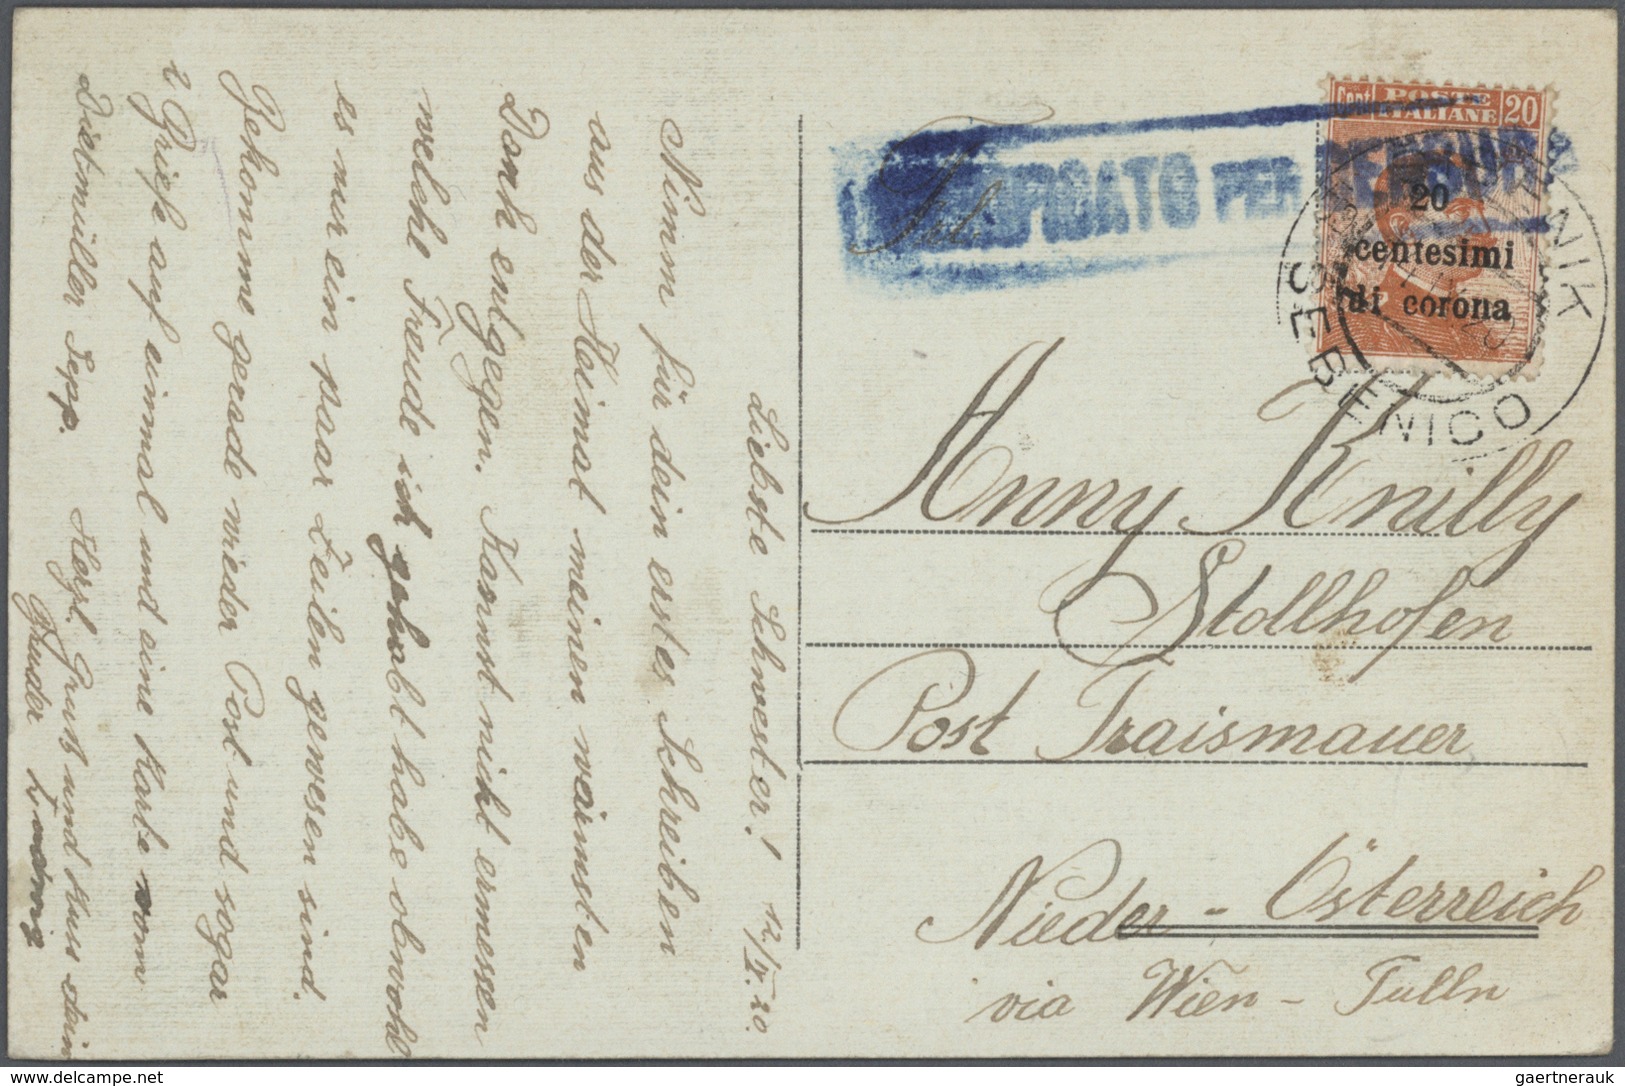 Liebste Schwester! 12./IV. 20.
Nimm für dein erstes Schreiben
aus der Heimat meinen wärmsten
Dank entgegen. Kannst nicht ermessen
welche Freude ich gehabt habe obwohl
es nur ein paar Zeilen gewesen sind.
Bekomme gerade wieder Post und sogar
2 Briefe auf einmal und eine Karte vom
Dietmüller Sepp. Herzl. Gruß und Kuss dein
Bruder
Frl.
VERIFICATO PER CENSURA
Cent. POSTE ITALIANE 20
20
centesimi
di corona
ŠIBENIK
SEBENICO
Anny Knilly
Stollhofen
Post Traismauer
Nieder-Österreich
via Wien - Tulln
delcampe.net
gaertnerauk